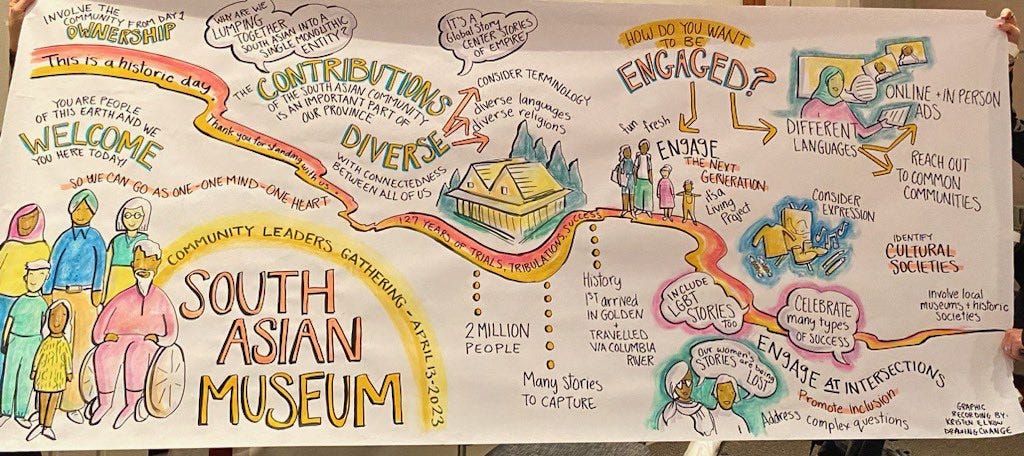 INVOLVE THE
COMMUNITY FROM DAY 1
OWNERSHIP
This is a historic day
Thank you for standing with us
WHY ARE WE
LUMPING
TOGETHER
SOUTH ASIAN INTO A
SINGLE MONOLITHIC
ENTITY?
THE CONTRIBUTIONS
OF THE SOUTH ASIAN COMMUNITY
IS AN IMPORTANT PART OF
OUR PROVINCE
IT'S A
Global Story
CENTER STORIES
OF EMPIRE
DIVERSE
CONSIDER TERMINOLOGY
diverse languages
diverse religions
WITH CONNECTEDNESS
BETWEEN ALL OF US
YOU ARE PEOPLE
OF THIS EARTH AND WE
WELCOME
YOU HERE TODAY!
SO WE CAN GO AS ONE-ONE MIND-ONE HEART
COMMUNITY LEADERS GATHERING - APRIL 13-2023
SOUTH
ASIAN
MUSEUM
127 YEARS OF TRIALS, TRIBULATIONS, SUCCESS
2 MILLION
PEOPLE
Many stories
TO CAPTURE
History
1ST arrived
IN GOLDEN
+
TRAVELLED
VIA COLUMBIA
RIVER
HOW DO YOU WANT
TO BE
ENGAGED?
fun fresh
ENGAGE
THE NEXT
GENERATION
it's a
Living
Project
DIFFERENT
LANGUAGES
ONLINE + IN PERSON
ADS
REACH OUT
TO COMMON
COMMUNITIES
CONSIDER
EXPRESSION
IDENTIFY
CULTURAL
SOCIETIES
Involve local
museums + historic
societies
INCLUDE
LGBT
STORIES
TOO
CELEBRATE
many types
OF SUCCESS
Our women's
STORIES are being
LOST
ENGAGE AT INTERSECTIONS
Promote inclusion
Address complex questions
GRAPHIC
RECORDING BY-
KRISTEN ELKOW
DRAWING CHANGE